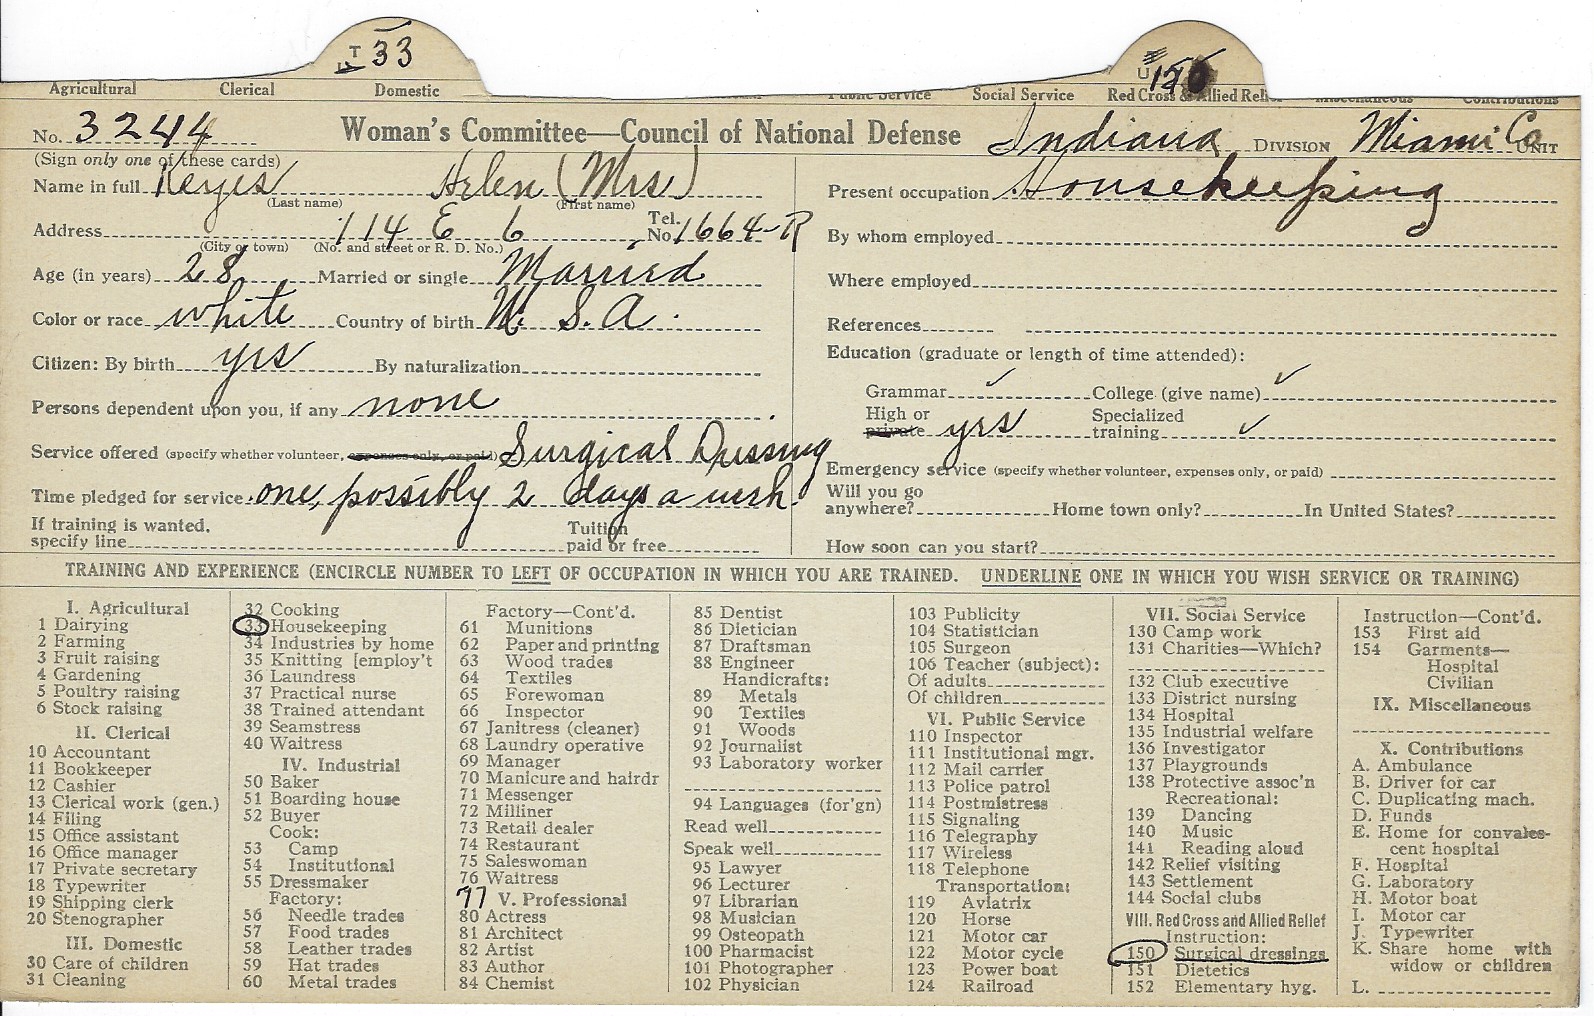 T 33
U 150
Agricultural Clerical Domestic Public Service Social Service Red Cross & Allied Relief Miscellaneous Contributions
No. 3244 Woman's Committee—Council of National Defense Indiana DIVISION Miami Co UNIT
(Sign only one of these cards)
Name in full Keyes Helen (Mrs)
(Last name) (First name)
Address 114 E 6 Tel. No. 1664-R
(City or town) (No. and street or R. D. No.)
Age (in years) 28 Married or single Married
Color or race white Country of birth U. S. A.
Citizen: By birth yes By naturalization
Persons dependent upon you, if any none
Service offered (specify whether volunteer, expenses only, or paid) Surgical Dressing
Time pledged for service one, possibly 2 days a week.
If training is wanted. specify line Tuition paid or free
Present occupation Housekeeping
By whom employed
Where employed
References
Education (graduate or length of time attended):
Grammar ✓ College (give name) ✓
High or private yes Specialized training ✓
Emergency service (specify whether volunteer, expenses only, or paid)
Will you go anywhere? Home town only? In United States?
How soon can you start?
TRAINING AND EXPERIENCE (ENCIRCLE NUMBER TO LEFT OF OCCUPATION IN WHICH YOU ARE TRAINED. UNDERLINE ONE IN WHICH YOU WISH SERVICE OR TRAINING)
I. Agricultural
1 Dairying
2 Farming
3 Fruit raising
4 Gardening
5 Poultry raising
6 Stock raising
II. Clerical
10 Accountant
11 Bookkeeper
12 Cashier
13 Clerical work (gen.)
14 Filing
15 Office assistant
16 Office manager
17 Private secretary
18 Typewriter
19 Shipping clerk
20 Stenographer
III. Domestic
30 Care of children
31 Cleaning
32 Cooking
33 Housekeeping
34 Industries by home
35 Knitting [employ't
36 Laundress
37 Practical nurse
38 Trained attendant
39 Seamstress
40 Waitress
IV. Industrial
50 Baker
51 Boarding house
52 Buyer
Cook:
53 Camp
54 Institutional
55 Dressmaker
Factory:
56 Needle trades
57 Food trades
58 Leather trades
59 Hat trades
60 Metal trades
Factory—Cont'd.
61 Munitions
62 Paper and printing
63 Wood trades
64 Textiles
65 Forewoman
66 Inspector
67 Janitress (cleaner)
68 Laundry operative
69 Manager
70 Manicure and hairdr
71 Messenger
72 Milliner
73 Retail dealer
74 Restaurant
75 Saleswoman
76 Waitress
77 V. Professional
80 Actress
81 Architect
82 Artist
83 Author
84 Chemist
85 Dentist
86 Dietician
87 Draftsman
88 Engineer
Handicrafts:
89 Metals
90 Textiles
91 Woods
92 Journalist
93 Laboratory worker
94 Languages (for'gn)
Read well
Speak well
95 Lawyer
96 Lecturer
97 Librarian
98 Musician
99 Osteopath
100 Pharmacist
101 Photographer
102 Physician
103 Publicity
104 Statistician
105 Surgeon
106 Teacher (subject):
Of adults
Of children
VI. Public Service
110 Inspector
111 Institutional mgr.
112 Mail carrier
113 Police patrol
114 Postmistress
115 Signaling
116 Telegraphy
117 Wireless
118 Telephone
Transportation:
119 Aviatrix
120 Horse
121 Motor car
122 Motor cycle
123 Power boat
124 Railroad
VII. Social Service
130 Camp work
131 Charities—Which?
132 Club executive
133 District nursing
134 Hospital
135 Industrial welfare
136 Investigator
137 Playgrounds
138 Protective assoc'n
Recreational:
139 Dancing
140 Music
141 Reading aloud
142 Relief visiting
143 Settlement
144 Social clubs
VIII. Red Cross and Allied Relief
Instruction:
150 Surgical dressings
151 Dietetics
152 Elementary hyg.
Instruction—Cont'd.
153 First aid
154 Garments—
Hospital
Civilian
IX. Miscellaneous
X. Contributions
A. Ambulance
B. Driver for car
C. Duplicating mach.
D. Funds
E. Home for convales-
cent hospital
F. Hospital
G. Laboratory
H. Motor boat
I. Motor car
J. Typewriter
K. Share home with
widow or children
L.